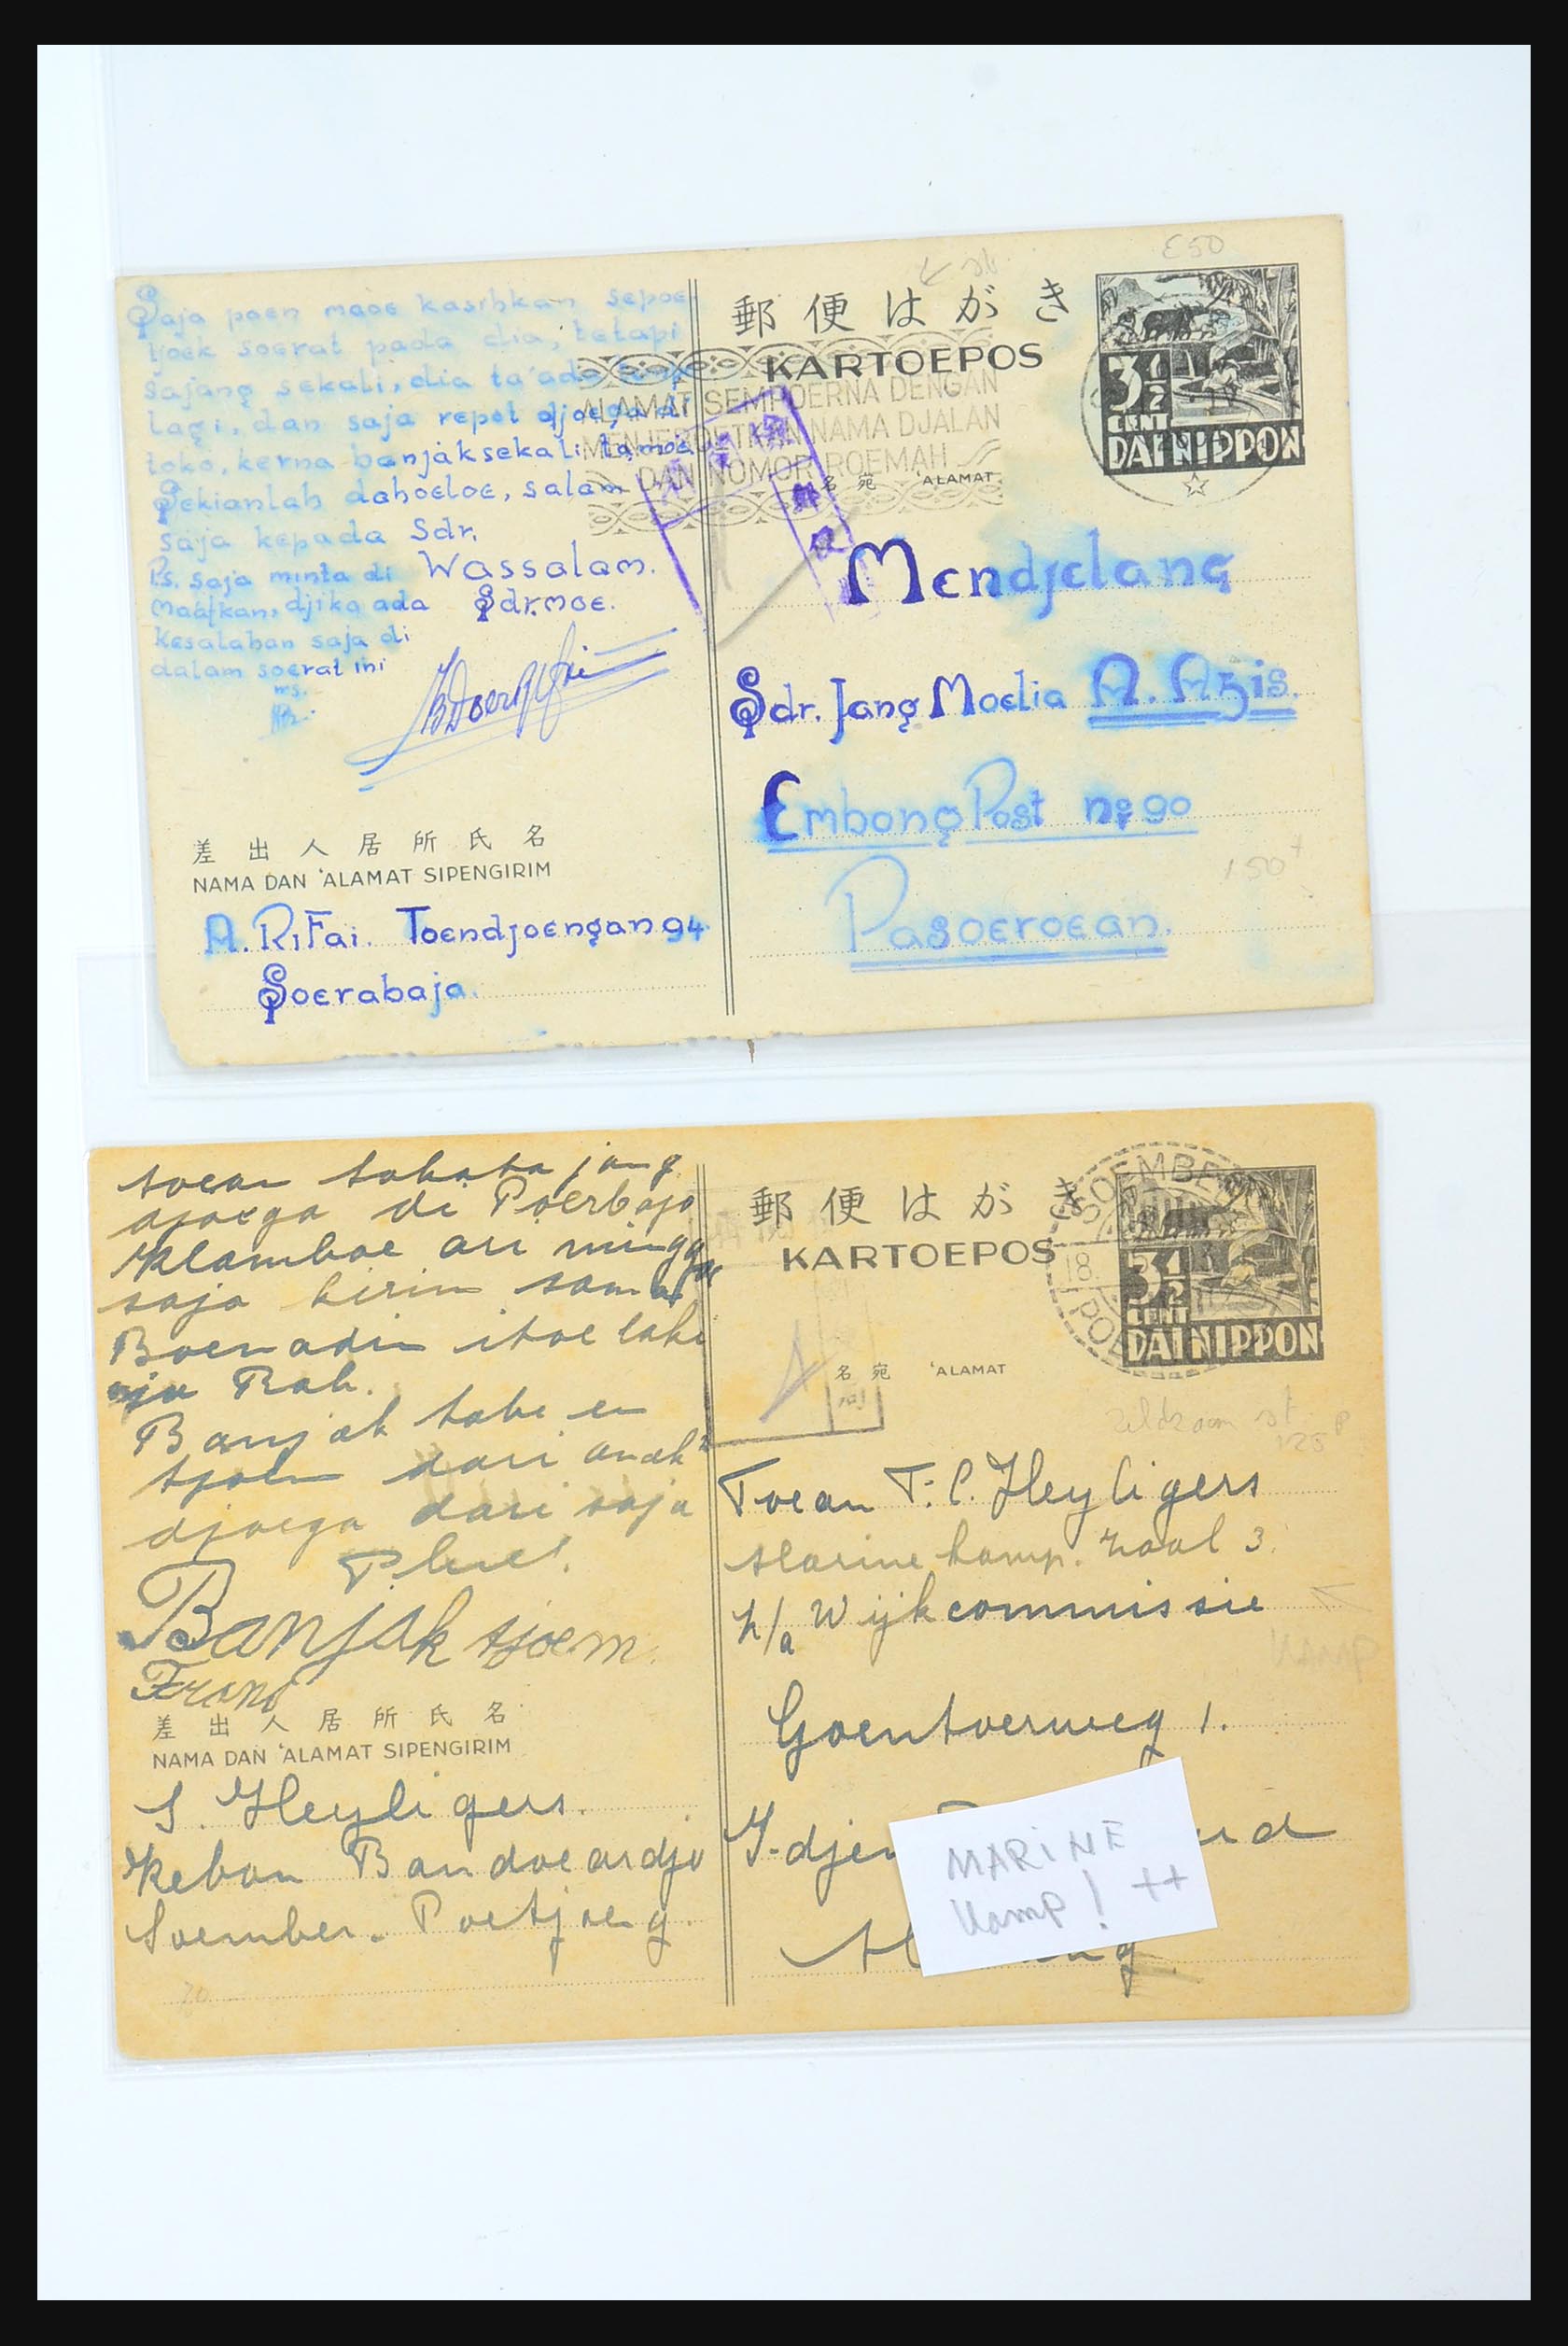 Saja poen maoe kasihkan sepoe-
tjoek soerat pada dia, tetapi
sajang sekali, dia ta'ada
lagi, dan saja repot djoega di
toko, kerna banjak sekali tamoe
Sekianlah dahoeloe, salam
saja kepada Sdr.
Wassalam.
Sdr.moe.
P.s. saja minta di
maäfkan, djika ada
kesalahan saja di
dalam soerat ini
差出人居所氏名
NAMA DAN 'ALAMAT SIPENGIRIM
A. RiFai. Toendjoengan 94.
Soerabaja.
郵便はがき
KARTOEPOS
ALAMAT SEMPOERNA DENGAN
MENJEBOETKAN NAMA DJALAN
DAN NOMOR ROEMAH
名宛 'ALAMAT
E50
3 1/2
CENT
DAI NIPPON
Mendjelang
Sdr. Jang Moelia A. Azis.
Embong Post no 90
Pasoeroean.
150+
toean jang
djoega di Poerbojo
Klamboe ari minggoe
saja kirim sama
Boenadin itoe laki
nja Bab.
Banjak tabe en
tjoem dari anak2
djoega dari saja
Banjak tjoem
Frans
差出人居所氏名
NAMA DAN 'ALAMAT SIPENGIRIM
S. Heyligers.
Kebon Bandoeardjo
Soember-Poetjoeng.
郵便はがき
KARTOEPOS
名宛 'ALAMAT
SOEMBER
18.
POE
3 1/2
CENT
DAI NIPPON
zeldzaam st.
125
Toean T. C. Heyligers
Marine kamp. zaal 3.
p/a Wijkcommissie
Kamp
Goentoerweg 1.
MARINE
Kamp! ++